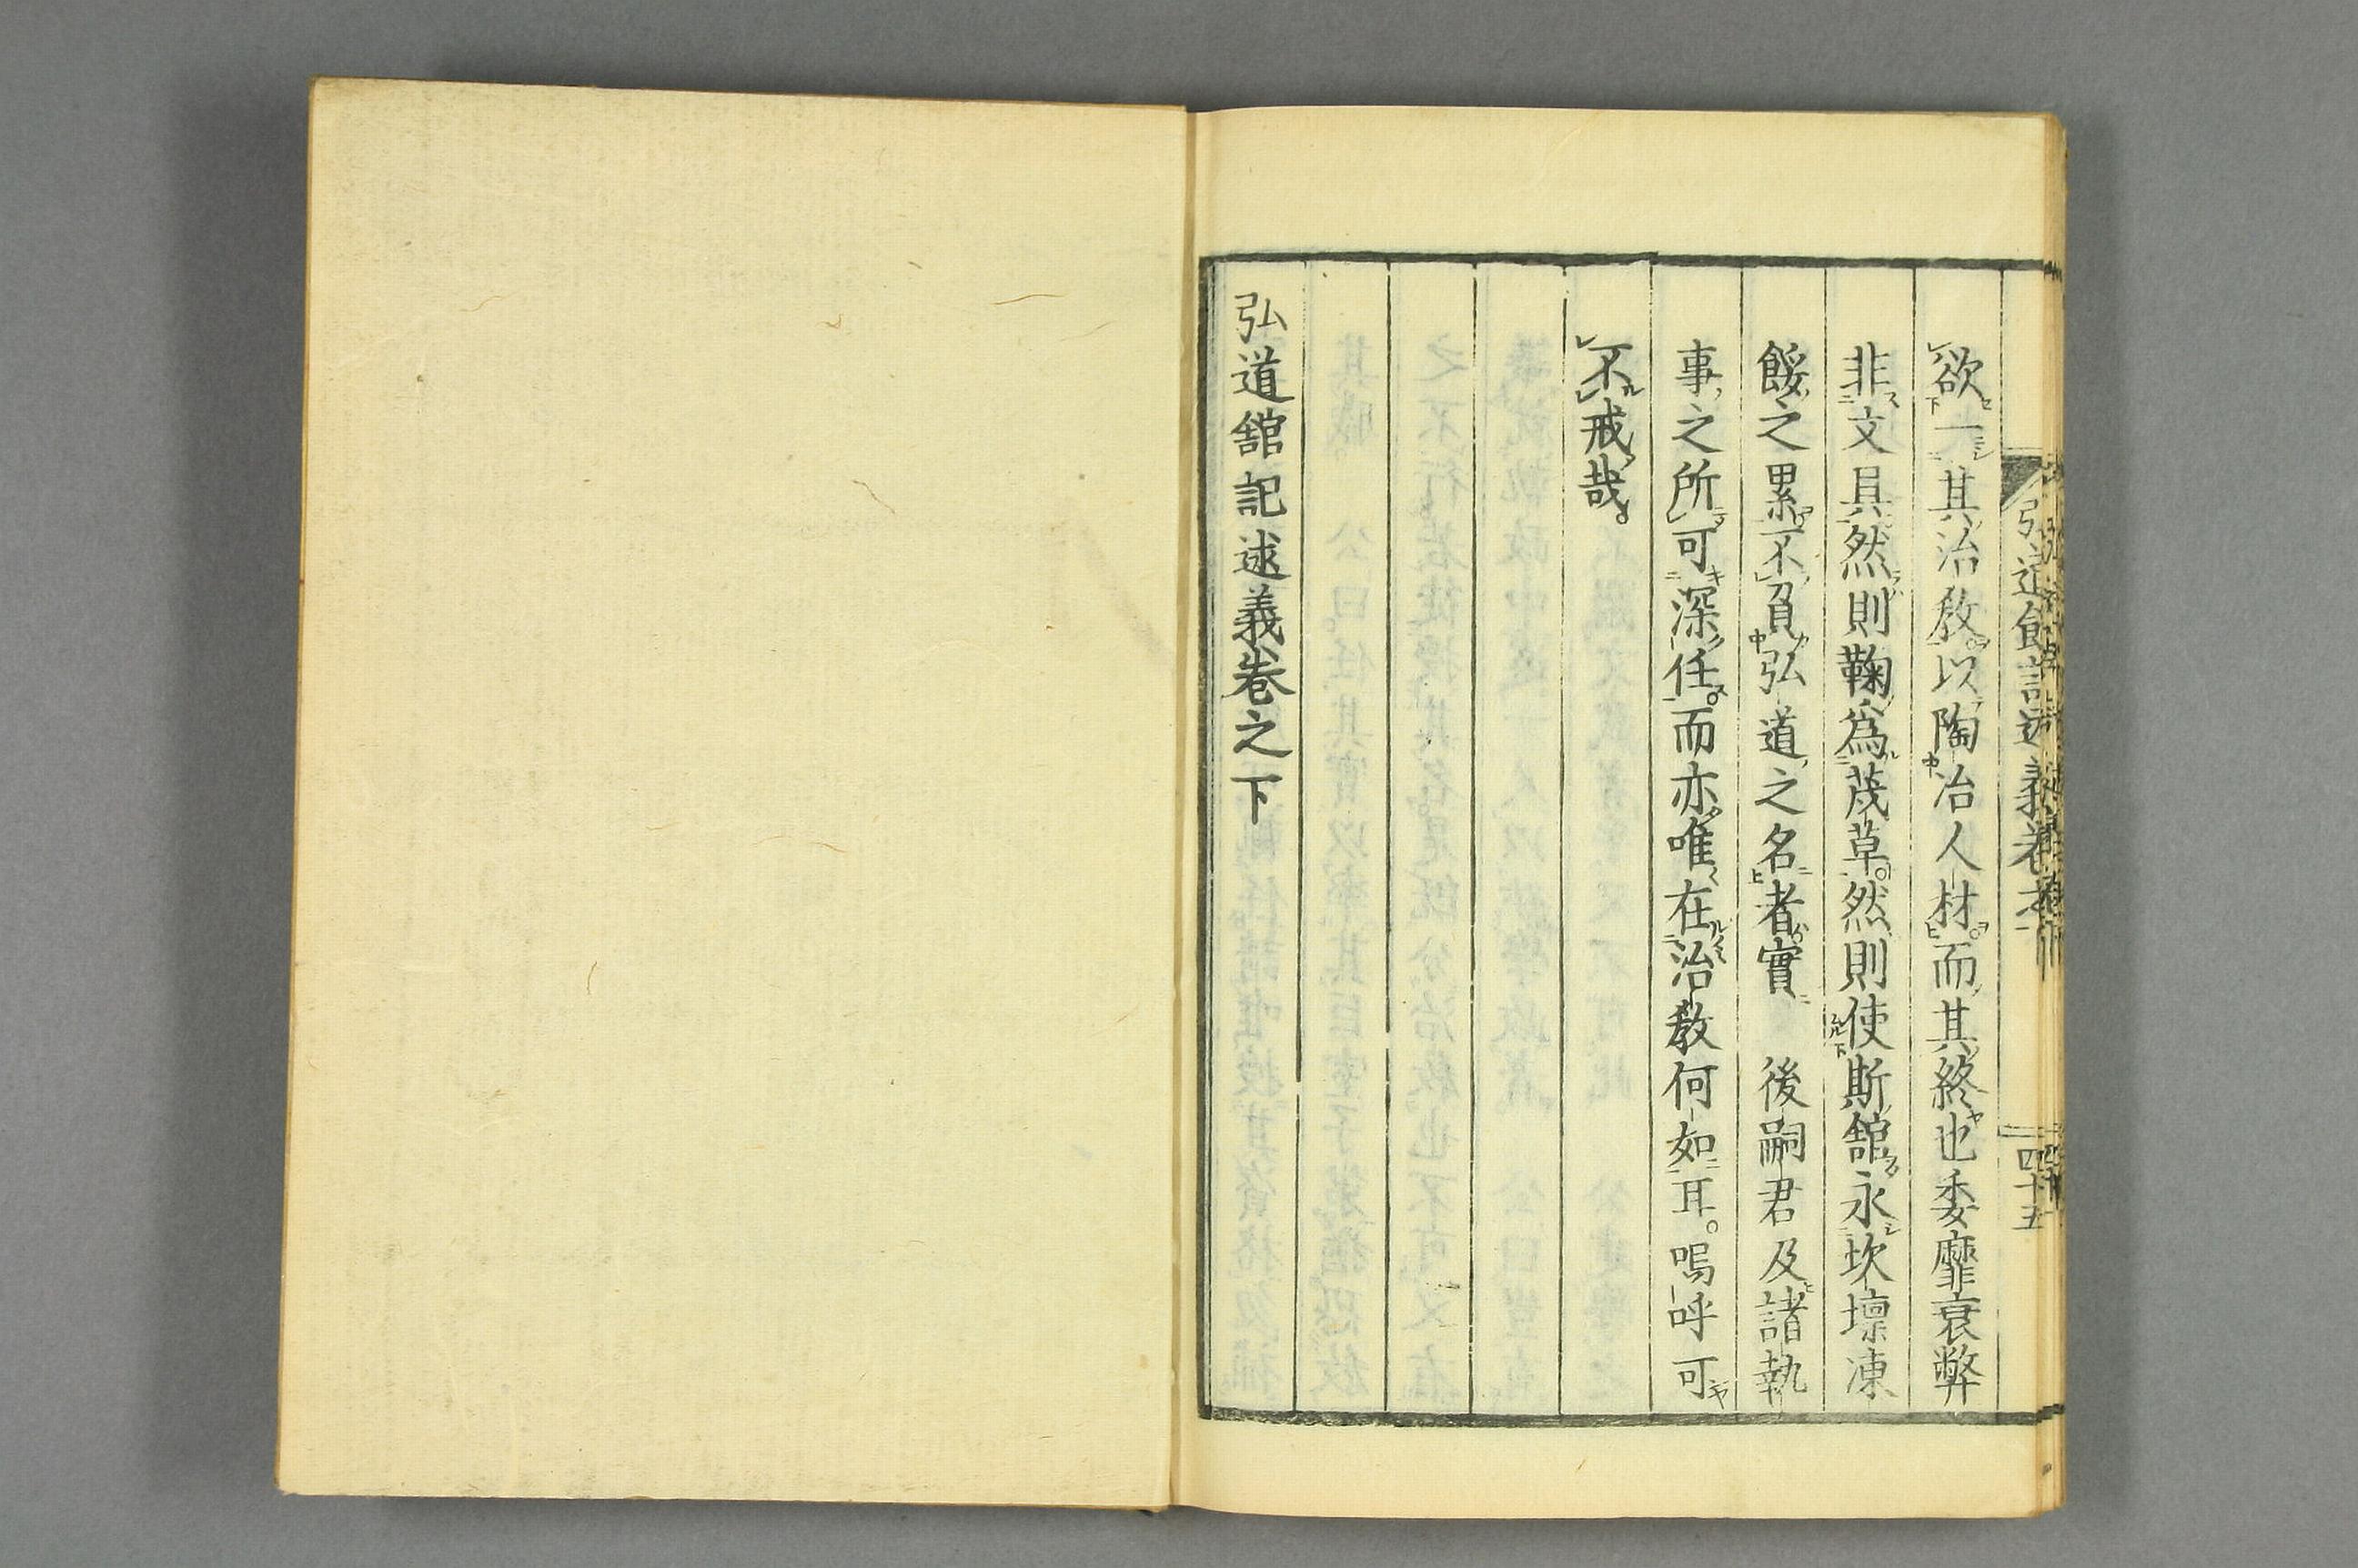 弘道館記述義卷之下
四十五
欲一其治敎。以陶冶人材。而其終也委靡衰弊
非文具然則鞠爲茂草。然則使斯舘永坎壈凍
餒之累。不負弘道之名者。實　後嗣君及諸執
事之所可深任。而亦唯在治敎何如耳。嗚呼可
不戒哉。
弘道舘記述義卷之下